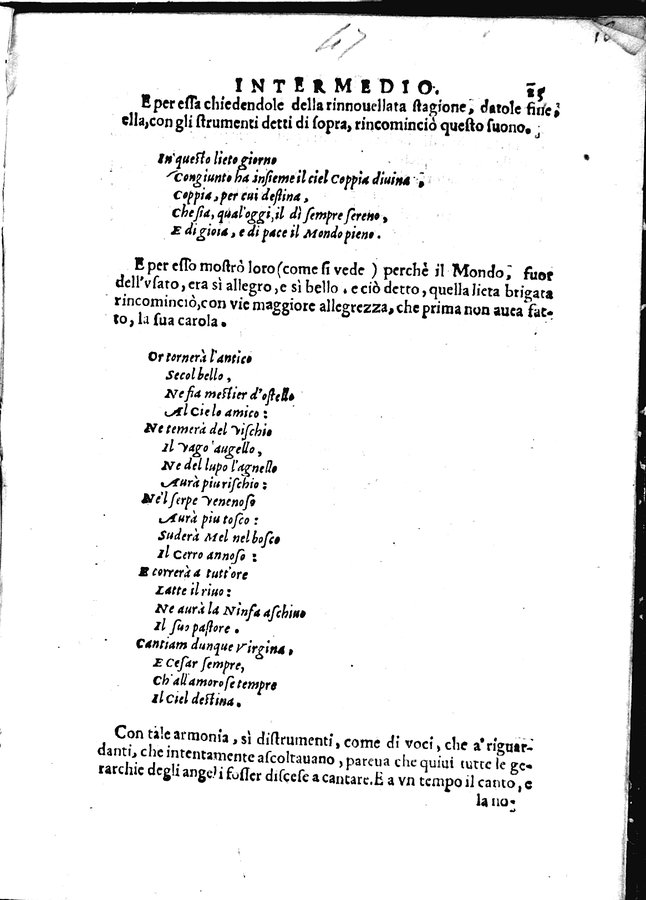 47
INTERMEDIO. 25
E per essa chiedendole della rinnouellata stagione, datole fine,
ella, con gli strumenti detti di sopra, rincominciò questo suono.
In questo lieto giorno
Congiunto ha insieme il ciel Coppia diuina,
Coppia, per cui destina,
Che sia, qual'oggi, il dì sempre sereno,
E di gioia, e di pace il Mondo pieno.
E per esso mostrò loro (come si vede) perchè il Mondo, fuor
dell'vsato, era sì allegro, e sì bello. e ciò detto, quella lieta brigata
rincominciò, con vie maggiore allegrezza, che prima non auea fat-
to, la sua carola.
Or tornerà l'antico
Secol bello,
Ne fia mestier d'ostello
Al Cielo amico:
Ne temerà del vischio
Il vago augello,
Ne del lupo l'agnello
Aurà piu rischio:
Ne'l serpe venenoso
Aurà piu tosco:
Suderà Mel nel bosco
Il Cerro annoso:
E correrà a tutt'ore
Latte il riuo:
Ne aurà la Ninfa aschiuo
Il suo pastore.
Cantiam dunque Virgina,
E Cesar sempre,
Ch'all'amorose tempre
Il Ciel destina.
Con tale armonia, sì distrumenti, come di voci, che a' riguar-
danti, che intentamente ascoltauano, pareua che quiui tutte le ge-
rarchie degli angeli fosser discese a cantare. E a vn tempo il canto, e
la no-